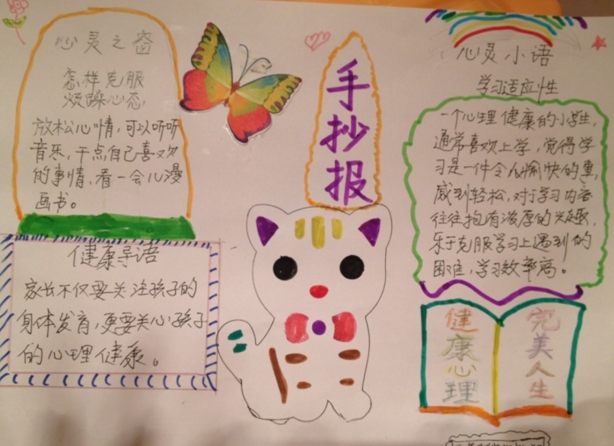 心灵之窗
怎样克服
烦躁心态
放松心情,可以听听
音乐,干点自己喜欢
的事情,看一会儿漫
画书。
健康导语
家长不仅要关注孩子的
身体发育,更要关心孩子
的心理健康。
手抄报
心灵小语
学习适应性
一个心理健康的小学生,
通常喜欢上学,觉得学
习是一件令人愉快的事,
感到轻松,对于学习内容
往往抱有浓厚的兴趣,
乐于克服学习上遇到的
困难,学习效率高。
健康心理
完美人生